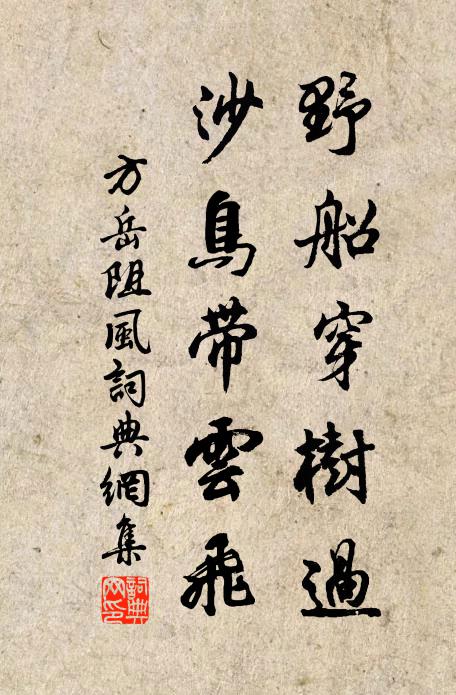 野船穿樹過
沙鳥帶雲飛
方岳阻風詞典網集
詞典網印